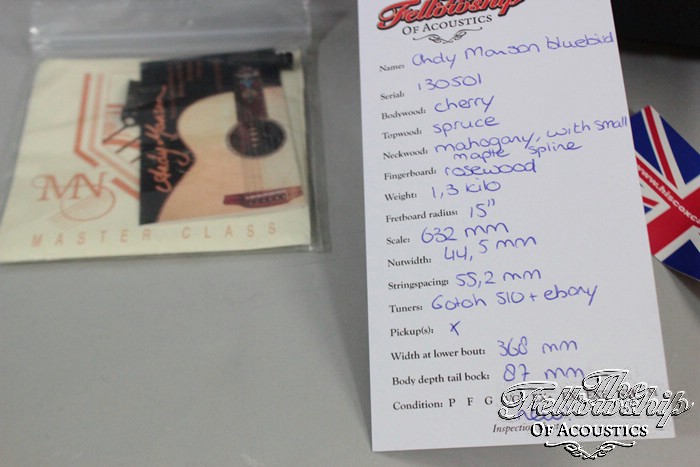 Fellowship
OF ACOUSTICS
Name: Andy Manson bluebird
Serial: 130501
Bodywood: cherry
Topwood: spruce
Neckwood: mahogany, with small
maple spline
Fingerboard: rosewood
Weight: 1,3 kilo
Fretboard radius: 15"
Scale: 632 mm
Nutwidth: 44,5 mm
Stringspacing: 55,2 mm
Tuners: Gotoh 510 + ebony
Pickup(s): x
Width at lower bout: 368 mm
Body depth tail bock: 87 mm
Condition: P F G VG
Inspection
Andy Manson
MN
MASTER CLASS
www.hiscox
The
Fellowship
OF ACOUSTICS